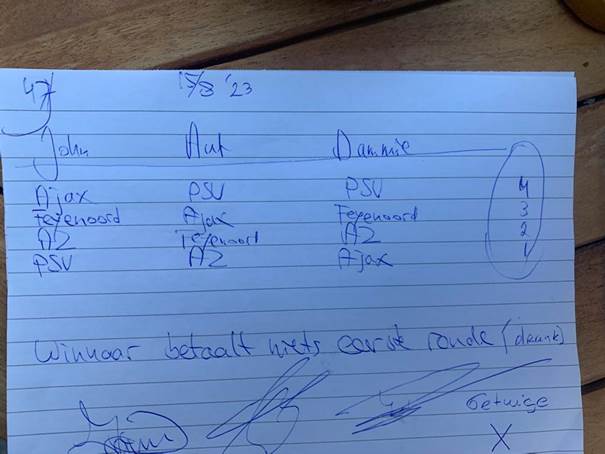 47 15/8 '23
John Aut Dammie
Ajax PSV PSV 4
Feyenoord Ajax Feyenoord 3
AZ Feyenoord AZ 2
PSV AZ Ajax 1
Winnaar betaalt niets eerste ronde (drank)
Getuige
X